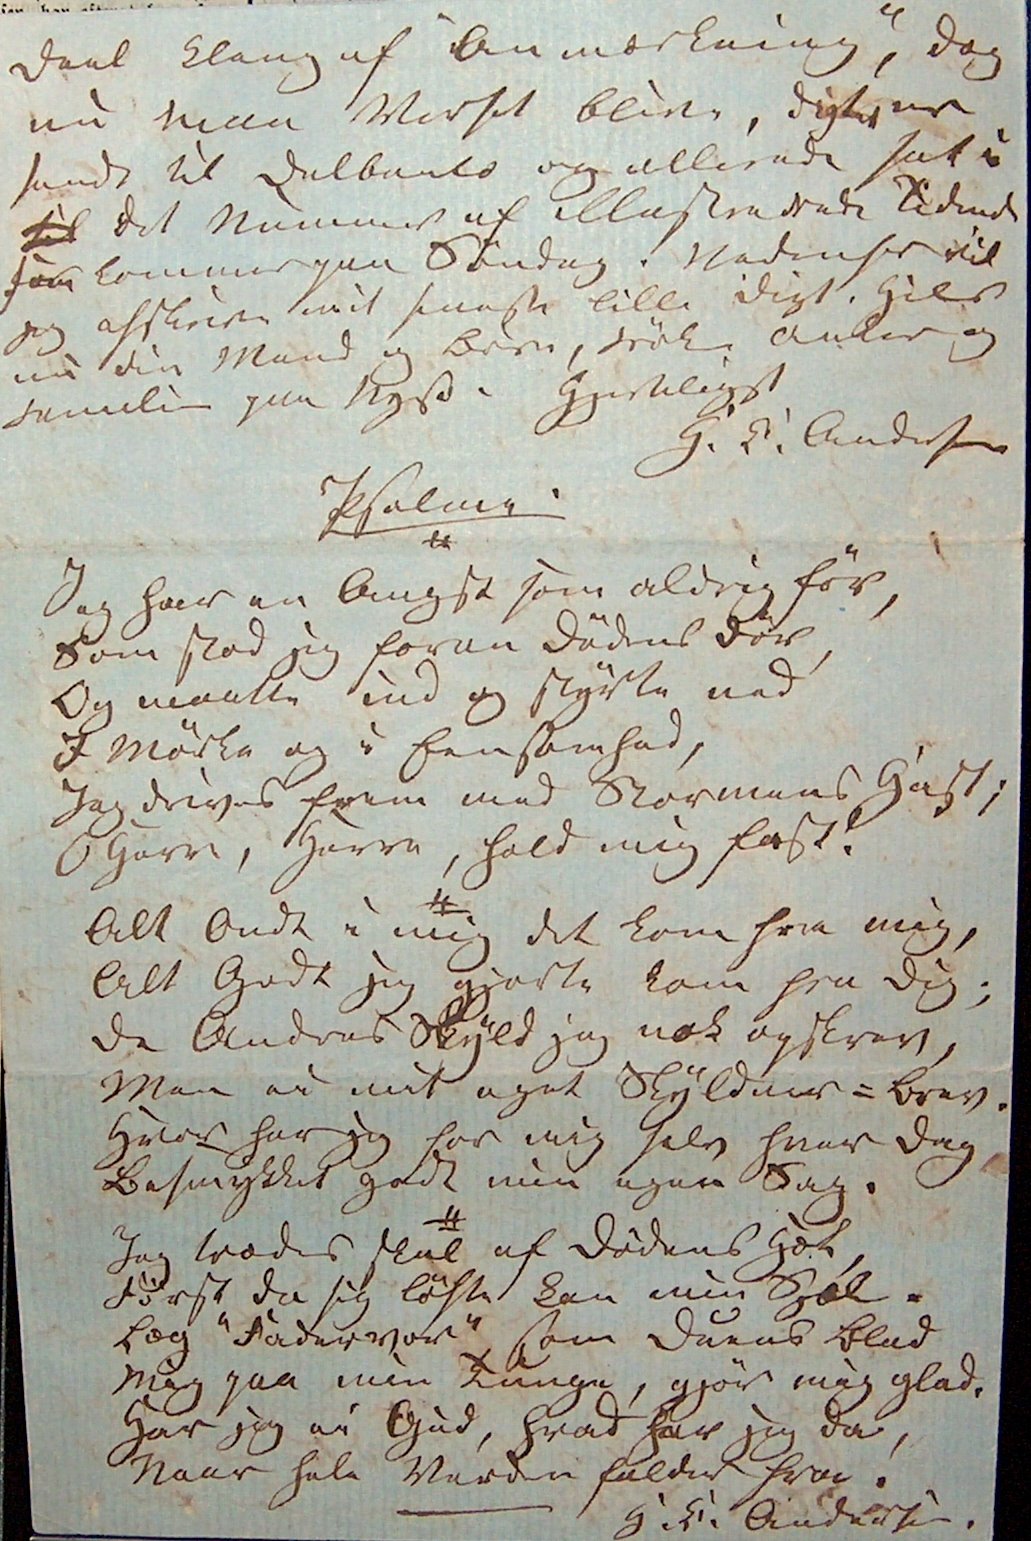 Deel Klang af "Anmærkning", dog
nu maa Verset blive, digtet er
sendt til Delbanco og allerede sat i
til det Nummer af illustrerede Tidende
som kommer paa Søndag. Nedenfor vil
jeg afskrive mit seneste lille Digt. Hils
nu din Mand og Børn, Frøken Anker og
Familien paa Nysø. Hjerteligst
H. C. Andersen
Psalme.
Jeg har en Angst som aldrig før,
Som stod jeg foran Dødens Dør,
Og maatte ind og styrte ned
I Mørke og i Eensomhed,
Jeg drives frem med Stormens Hast;
O Herre, Herre, hold mig fast!
Alt Ondt i mig det kom fra mig,
Alt Godt jeg gjorte kom fra Dig;
De Andres Skyld jeg nok opskrev,
Men ei mit eget Skyldner=Brev.
Hvor har jeg for mig selv hver Dag
Besmykket godt min egen Sag.
Jeg trædes skal af Dødens Hæl,
Først da sig løfte kan min Sjæl.
Læg "Fadervor" som Duens Blad
Mig paa min Tunge, gjør mig glad.
Har jeg ei Gud, hvad har jeg da,
Naar hele Verden falder fra!
H. C. Andersen.